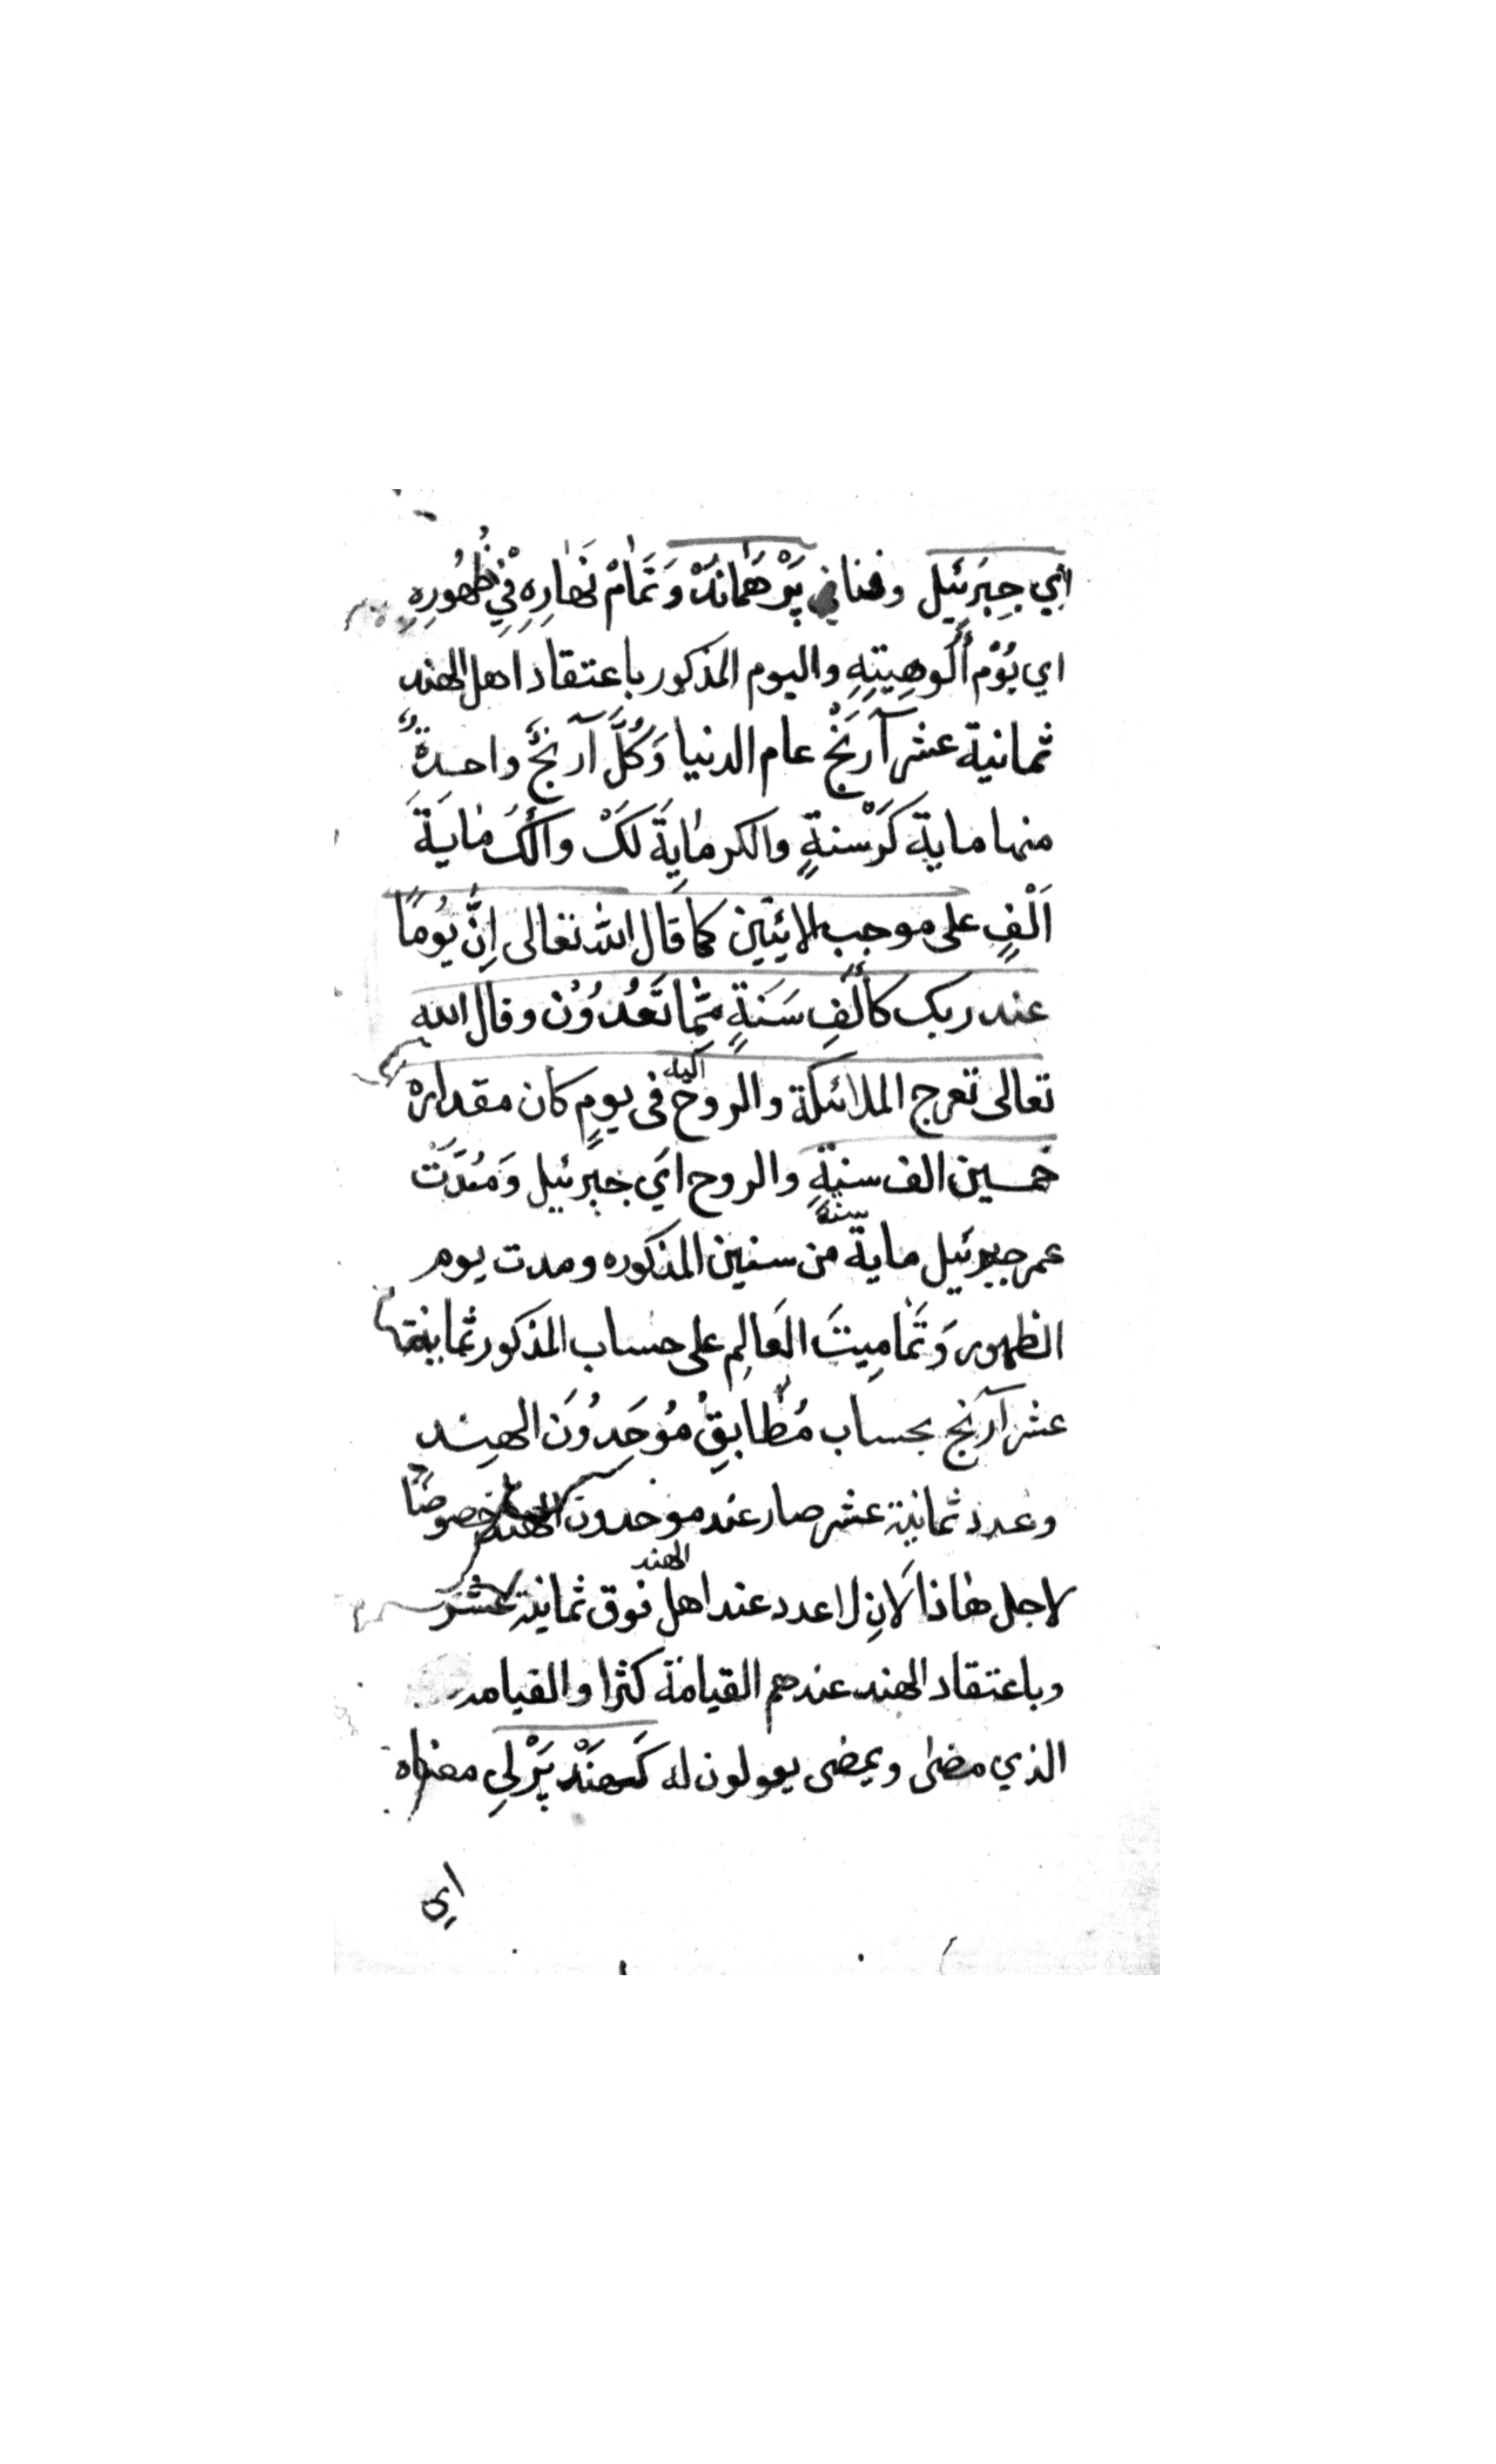 اَيِ جِبرَئِيل وفنائي پَرْهَمانَدْ وَ تَمَامْ نَهارِهِ فِي ظُهُورِهِ
اي يَوْم أُلُوهِيتِهِ واليوم المذكور باعتقاد اهل الهند
ثمانية عشر آرَنْج عام الدنيا وَكُلَّ آرَنجٌ واحدةٌ
منها ماية كَرْسنةٍ والكر مايَةَ لَكْ والَّكُ مايَةَ
اَلْفٍ على موجب لايتين كما قال الله تعالى اِنَّ يَوْمًا
عند ربك كأَلْفِ سَنَةٍ مِمَّا تَعُدُوْن وقال الله
تعالى تعرج الملائكة والروح اليه فى يومٍ كان مقداره
خمسين الف سنةٍ والروح ايَ جِبَرئيل وَمُدَتْ
عمر جبرئيل ماية سنة من سنين المذكوره ومدت يوم
الظهور وَتَمامِيتَ العَالِم على حساب المذكور ثمانية
عشر آرَنج بحساب مُطَابِقِ مُوَحَدُوْنَ الهند
وعدد ثمانية عشر صار عند موحدون الهند خصوصًا
لاجل هاذا لانِ لا عدد عند اهل الهند فوق ثمانية عشر
وباعتقاد الهند عندهم القيامة كثرا والقيامه
الذي مضى ويمضى يقولون له كَهنَدْ پَرْلِي معناه
اى